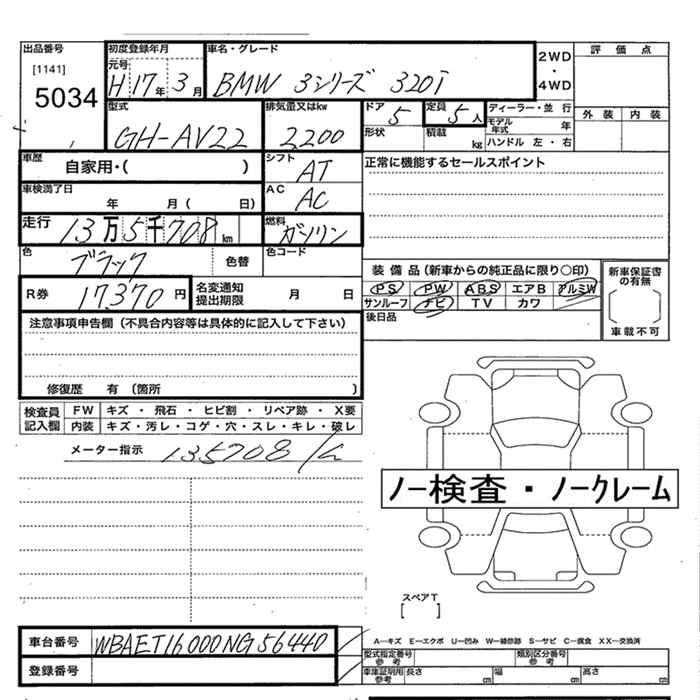 出品番号
[1141]
5034
初度登録年月
元号
H 17年 3月
車名・グレード
BMW 3シリーズ 320i
2WD
・
4WD
評価点
外装 内装
型式
GH-AV22
排気量又はkw
2200
ドア
5
形状
定員
5人
積載 kg
ディーラー・並行
モデル年式 年
ハンドル 左・右
車歴
自家用・( )
シフト
AT
正常に機能するセールスポイント
車検満了日
年 月( 日)
AC
AC
走行
13万5千708km
燃料
ガソリン
色
ブラック
色替
色コード
R券
17,370円
名変通知
提出期限
月 日
装備品(新車からの純正品に限り○印)
PS PW ABS エアB アルミW
サンルーフ ナビ TV カワ
後日品
新車保証書
の有無
車載不可
注意事項申告欄(不具合内容等は具体的に記入して下さい)
修復歴 有(箇所 )
検査員
記入欄
FW キズ・飛石・ヒビ割・リペア跡・X要
内装 キズ・汚レ・コゲ・穴・スレ・キレ・破レ
メーター指示 135708
ノー検査・ノークレーム
スペアT
[ ]
車台番号 WBAET16000NG56440
登録番号
A―キズ E―エクボ U―凹み W―補修跡 S―サビ C―腐食 XX―交換済
型式指定番号
参考
類別区分番号
参考
車庫証明用
参考
長さ cm 幅 cm 高さ cm